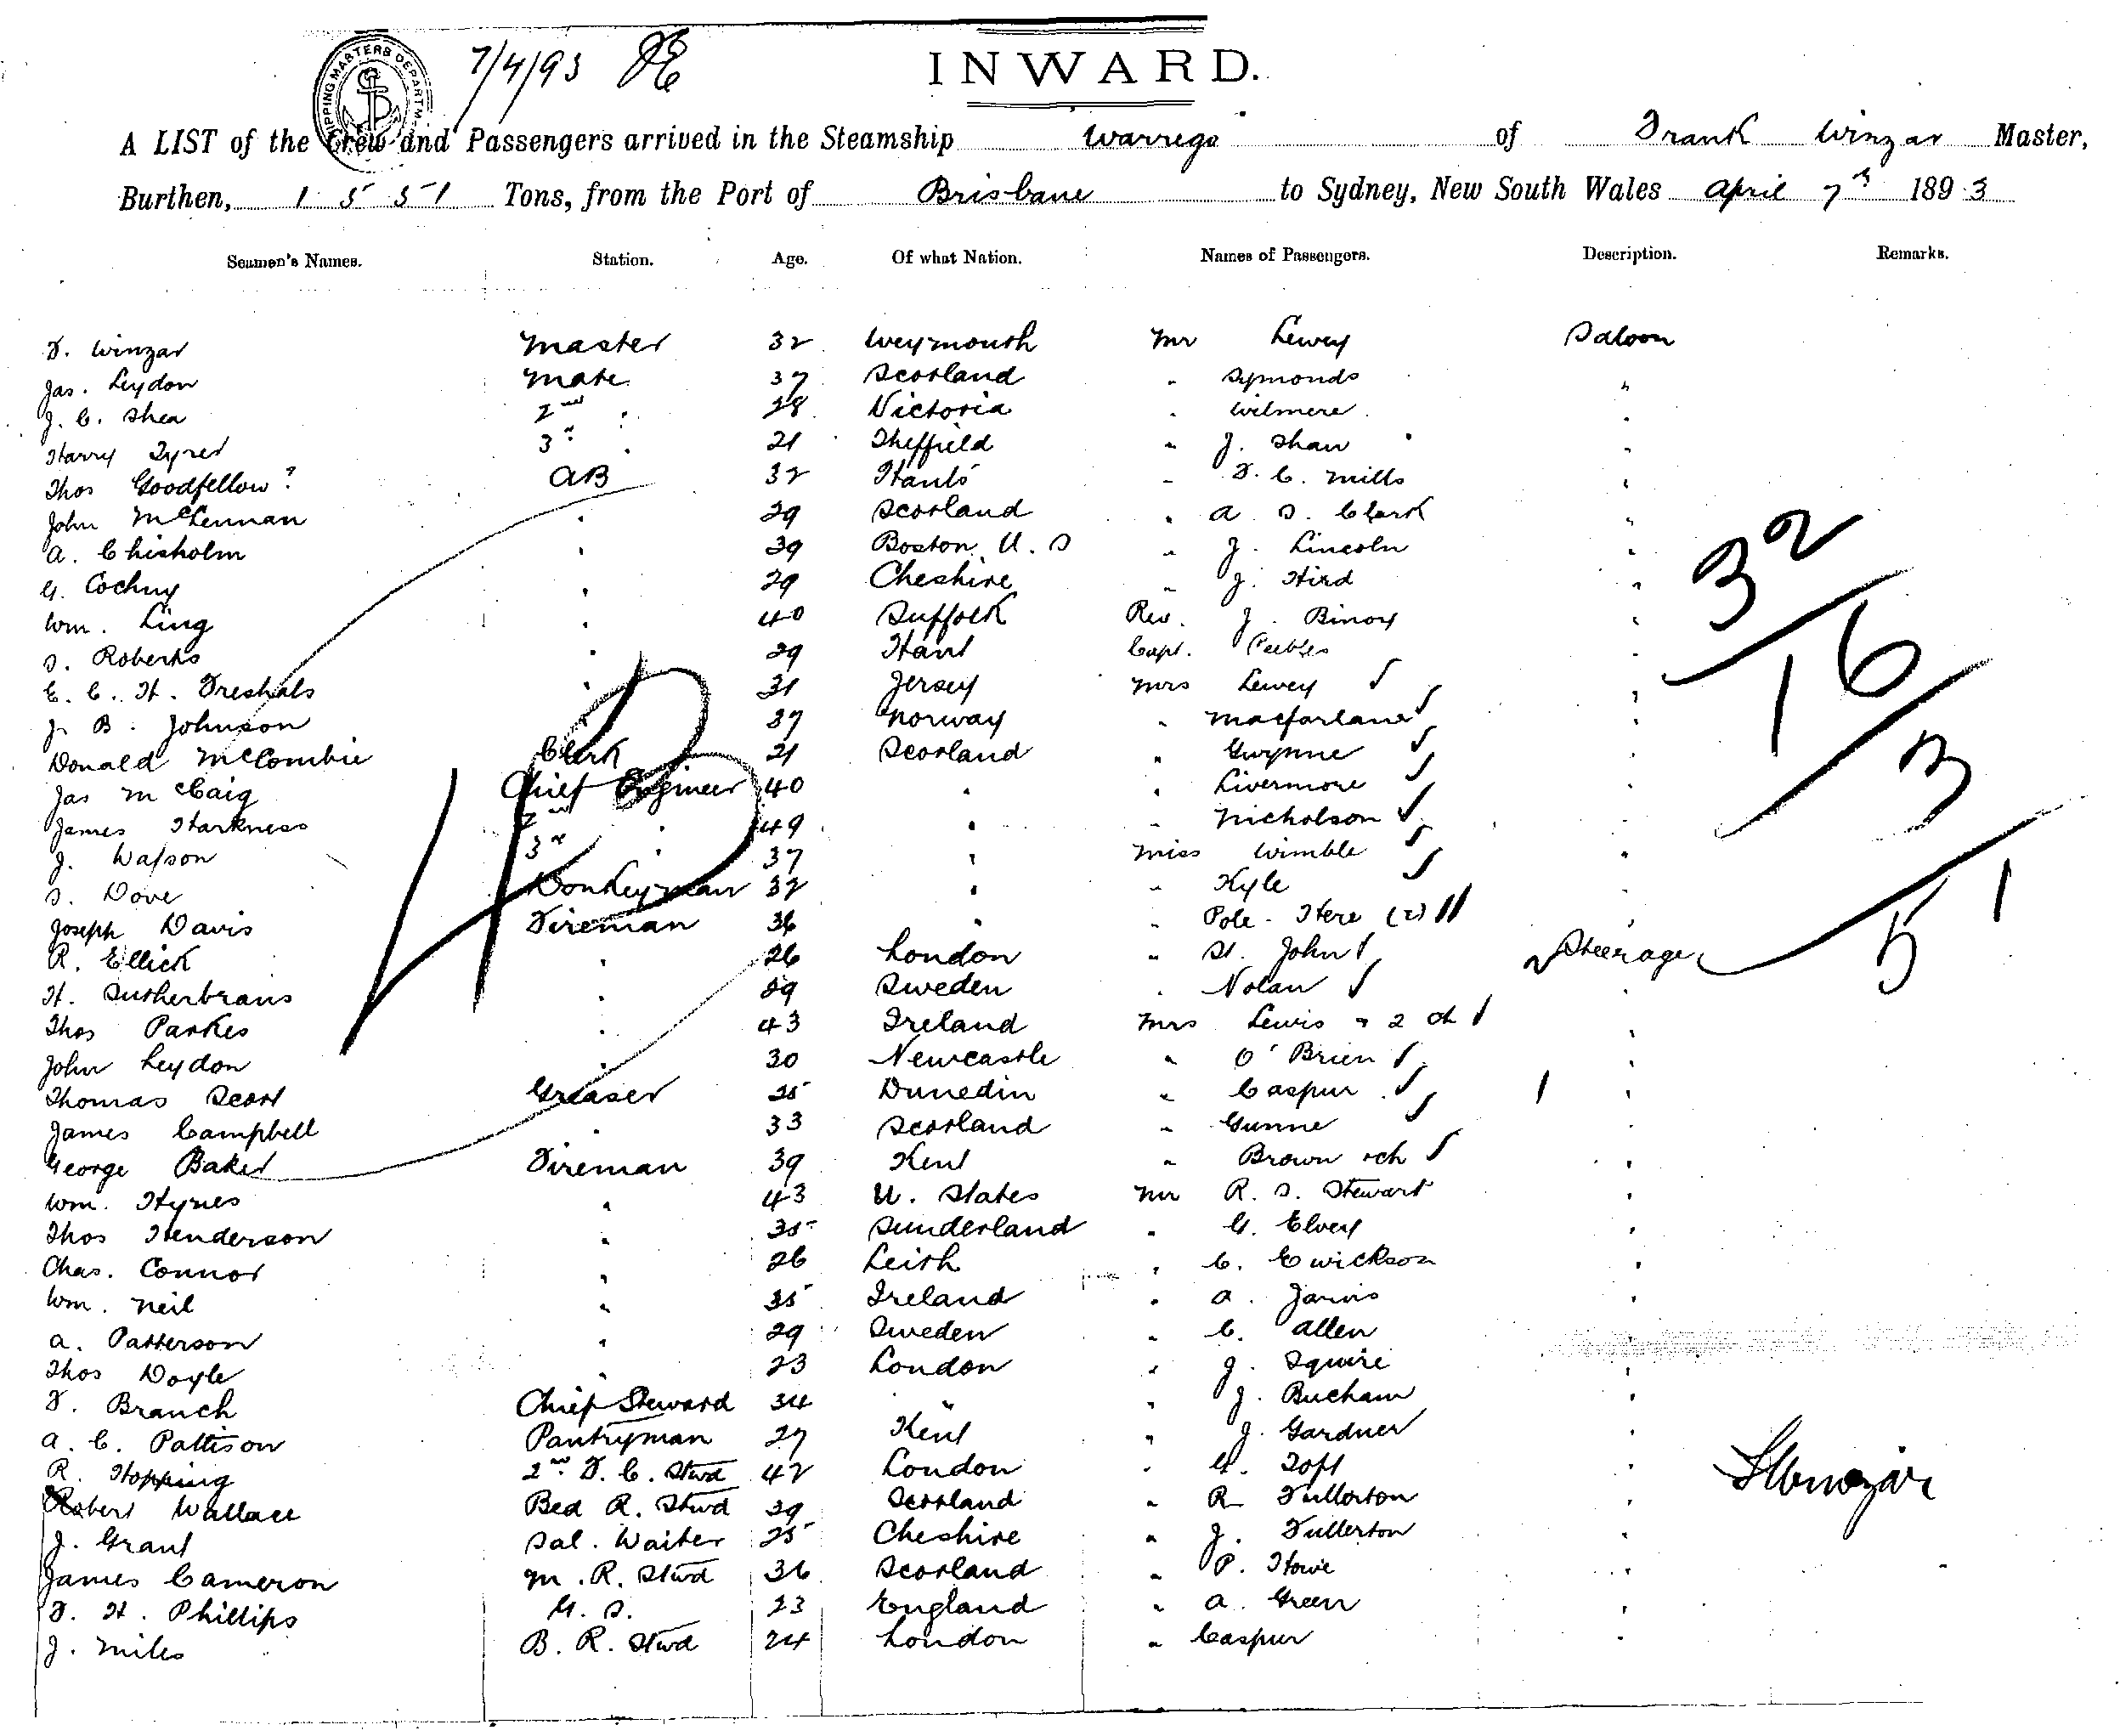 7/4/93
INWARD.
SHIPPING MASTERS DEPARTM
A LIST of the Crew and Passengers arrived in the Steamship Warrego of Frank Winzar Master,
Burthen, 1551 Tons, from the Port of Brisbane to Sydney, New South Wales April 7th 1893
Seamen's Names. Station. Age. Of what Nation. Names of Passengers. Description. Remarks.
F. Winzar Master 32 Weymouth Mr Lewey Saloon
Jas. Leydon Mate 37 Scotland " Symonds "
J. C. Shea 2nd " 28 Victoria " Wilmere "
Harry Tyrer 3rd " 21 Sheffield " J. Shaw "
Thos Goodfellow? AB 32 Hants " F. C. Mills "
John McLennan " 29 Scotland " A. S. Clark "
A. Chisholm " 39 Boston U. S " J. Lincoln "
G. " 29 Cheshire " J. Hird "
Wm. Ling " 40 Suffolk Rev. J. "
S. Roberts " 29 Hant Capt. Peebles "
E. C. H. " 31 Jersey Mrs Lewey "
J. B. Johnson " 37 Norway " Macfarlane "
Donald McCombie Clerk 21 Scotland " Gwynne "
Jas McCaig Chief Engineer 40 " " Livermore "
James Harkness 2nd " 49 " " Nicholson "
J. Watson 3rd " 37 " Miss Wimble "
S. Dove Donkeyman 32 " " Kyle "
Joseph Davis Fireman 36 " " Pole-Here (2) "
R. Ellick " 26 London " St. John Steerage
H. " 29 Sweden " Nolan "
Thos Parkes " 43 Ireland Mrs Lewis & 2 ch "
John Leydon " 30 Newcastle " O'Brien "
Thomas Scott Greaser 25 Dunedin " Caspur "
James Campbell " 33 Scotland " Gunne "
George Baker Fireman 39 Kent " Brown & ch "
Wm. Hynes " 43 U. States Mr R. S. Stewart "
Thos Henderson " 35 Sunderland " G. Elvey "
Chas. Connor " 26 Leith " C. Ewickson "
Wm. Neil " 35 Ireland " A. Jarvis "
A. Patterson " 29 Sweden " C. Allen "
Thos Doyle " 23 London " J. Squire "
F. Branch Chief Steward 34 " " J. Bucham "
A. C. Pattison Pantryman 27 Kent " J. Gardner "
R. Hopping 2nd F. C. Stwd 42 London " G. Toft "
Robert Wallace Bed R. Stwd 29 Scotland " R. Fullerton "
J. Grant Sal. Waiter 25 Cheshire " J. Fullerton "
James Cameron M. R. Stwd 36 Scotland " P. Howe "
F. H. Phillips G. S. 23 England " A. Green "
J. Miles B. R. Stwd 24 London " Caspur "
32
16
3
51
F Winzar